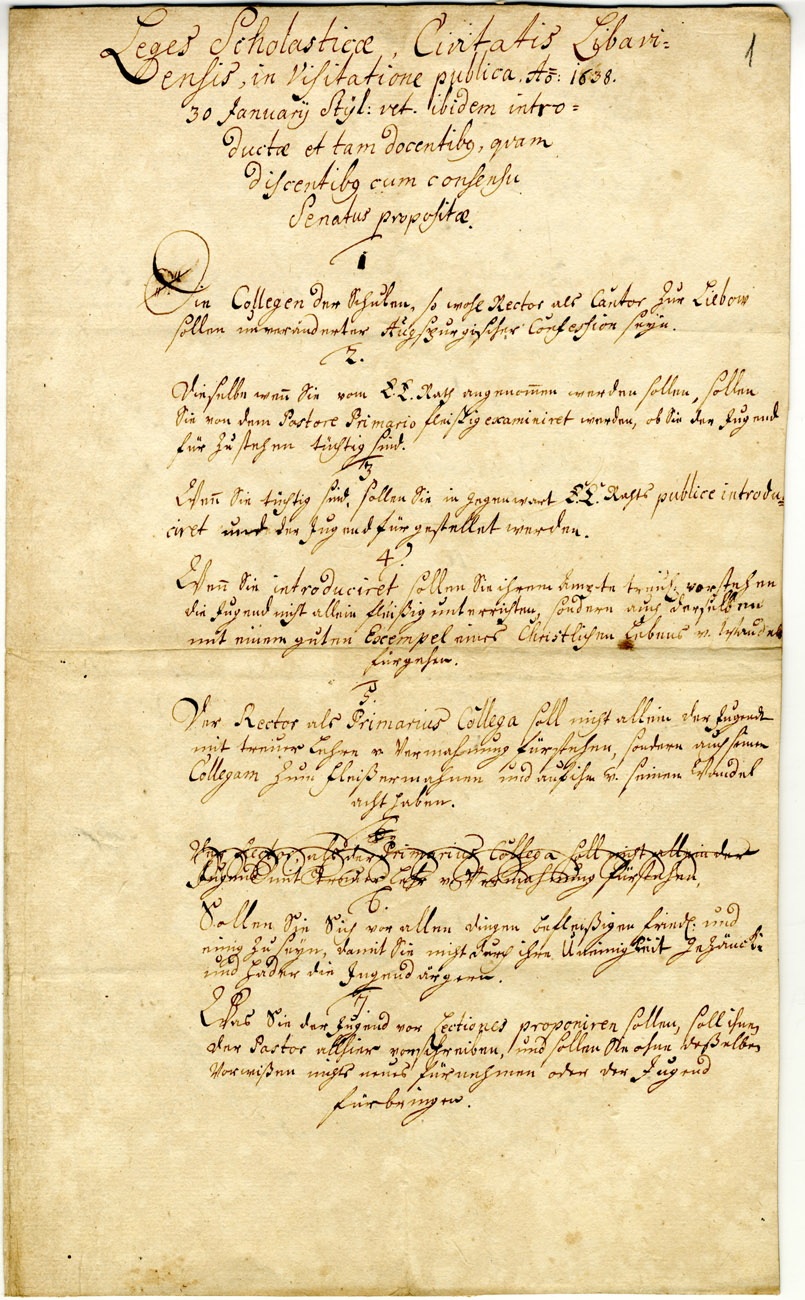 1
Leges Scholasticæ, Civitatis Libavi=
Densis, in Visitatione publica. Ao: 1638.
30 Januarij Styl: vet. ibidem intro=
ductæ et tam docentibq, qvam
discentibq cum consensu
Senatus propositæ.
1
Die Collegen der Schulen, so wohl Rector als Cantor zur Liebow
sollen unveränderter Augspurgischer Confession seyn.
2.
Dieselbe weñ Sie vom E. E. Rath angenom̄en werden sollen, sollen
Sie von dem Pastore Primario fleißig examiniret werden, ob Sie der Jugend
für zu stehen tüchtig sind.
3
Weñ Sie tüchtig sind, sollen Sie in gegenwart E. E. Rahts publice introdu=
ciret und der Jugend für gestellet werden.
4.
Weñ Sie introduciret sollen Sie ihrem Ampte treul. vorstehen
die Jugend nicht allein fleißig unterrichten, sondern auch derselben
mit einem guten Exempel eines Christlichen Lebens v. Wandels
fürgehen.
5.
Der Rector als Primarius Collega soll nicht allein der Jugendt
mit treuer Lehre v Vermahnung fürstehen, sondern auch seinen
Collegam zum fleiß ermahnen und auf ihn v. seinen Wandel
acht haben.
Der Rector, als der Primarius Collega soll nicht allein der
Jugend mit treuer Lehr v Vermahnung fürstehen,
6.
Sollen Sie Sich vor allen dingen befleißigen friedl: und
einig zu seyn, damit Sie nicht durch ihre Uneinigkeit Gezänck
und Hader die Jugend ärgern.
7.
Was Sie der Jugend vor Lectiones proponiren sollen, soll ihnen
der Pastor allhier vorschreiben, und sollen Sie ohne deßelben
Vorwißen nichts neues fürnehmen oder der Jugend
fürbringen.